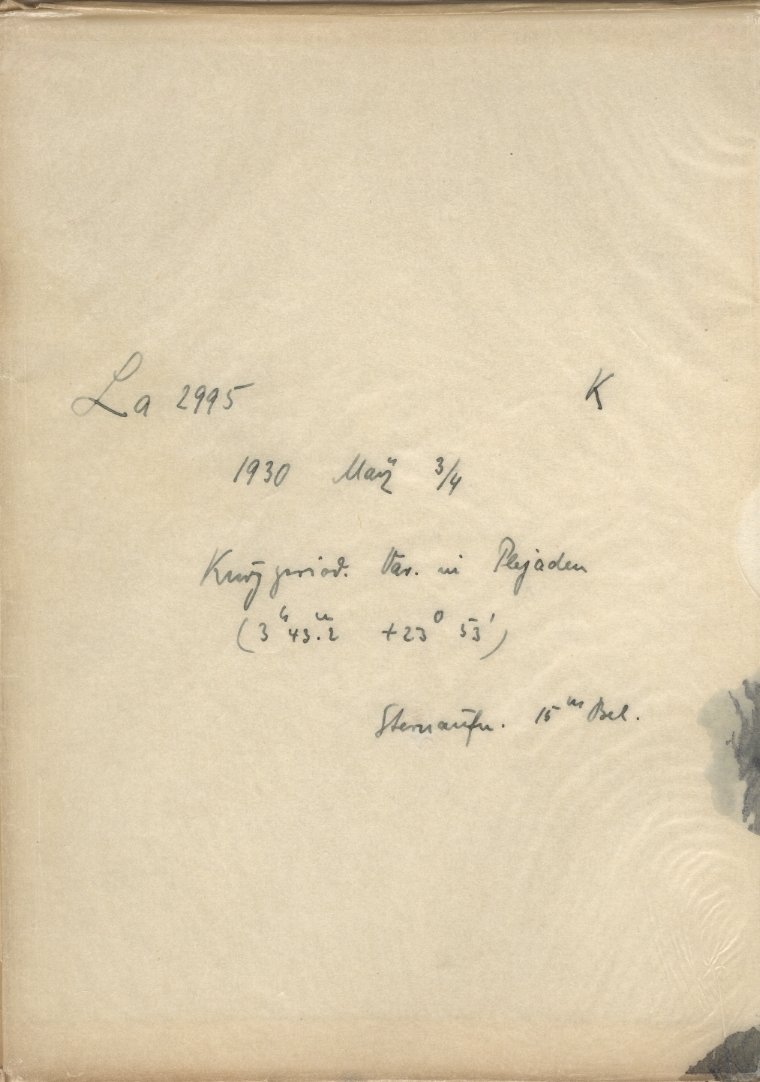 La 2995 K
1930 März 3/4
Kurzperiod. Var. in Plejaden
(3ʰ 43ᵐ.2 +23⁰ 53')
Sternaufn. 15ᵐ Bel.